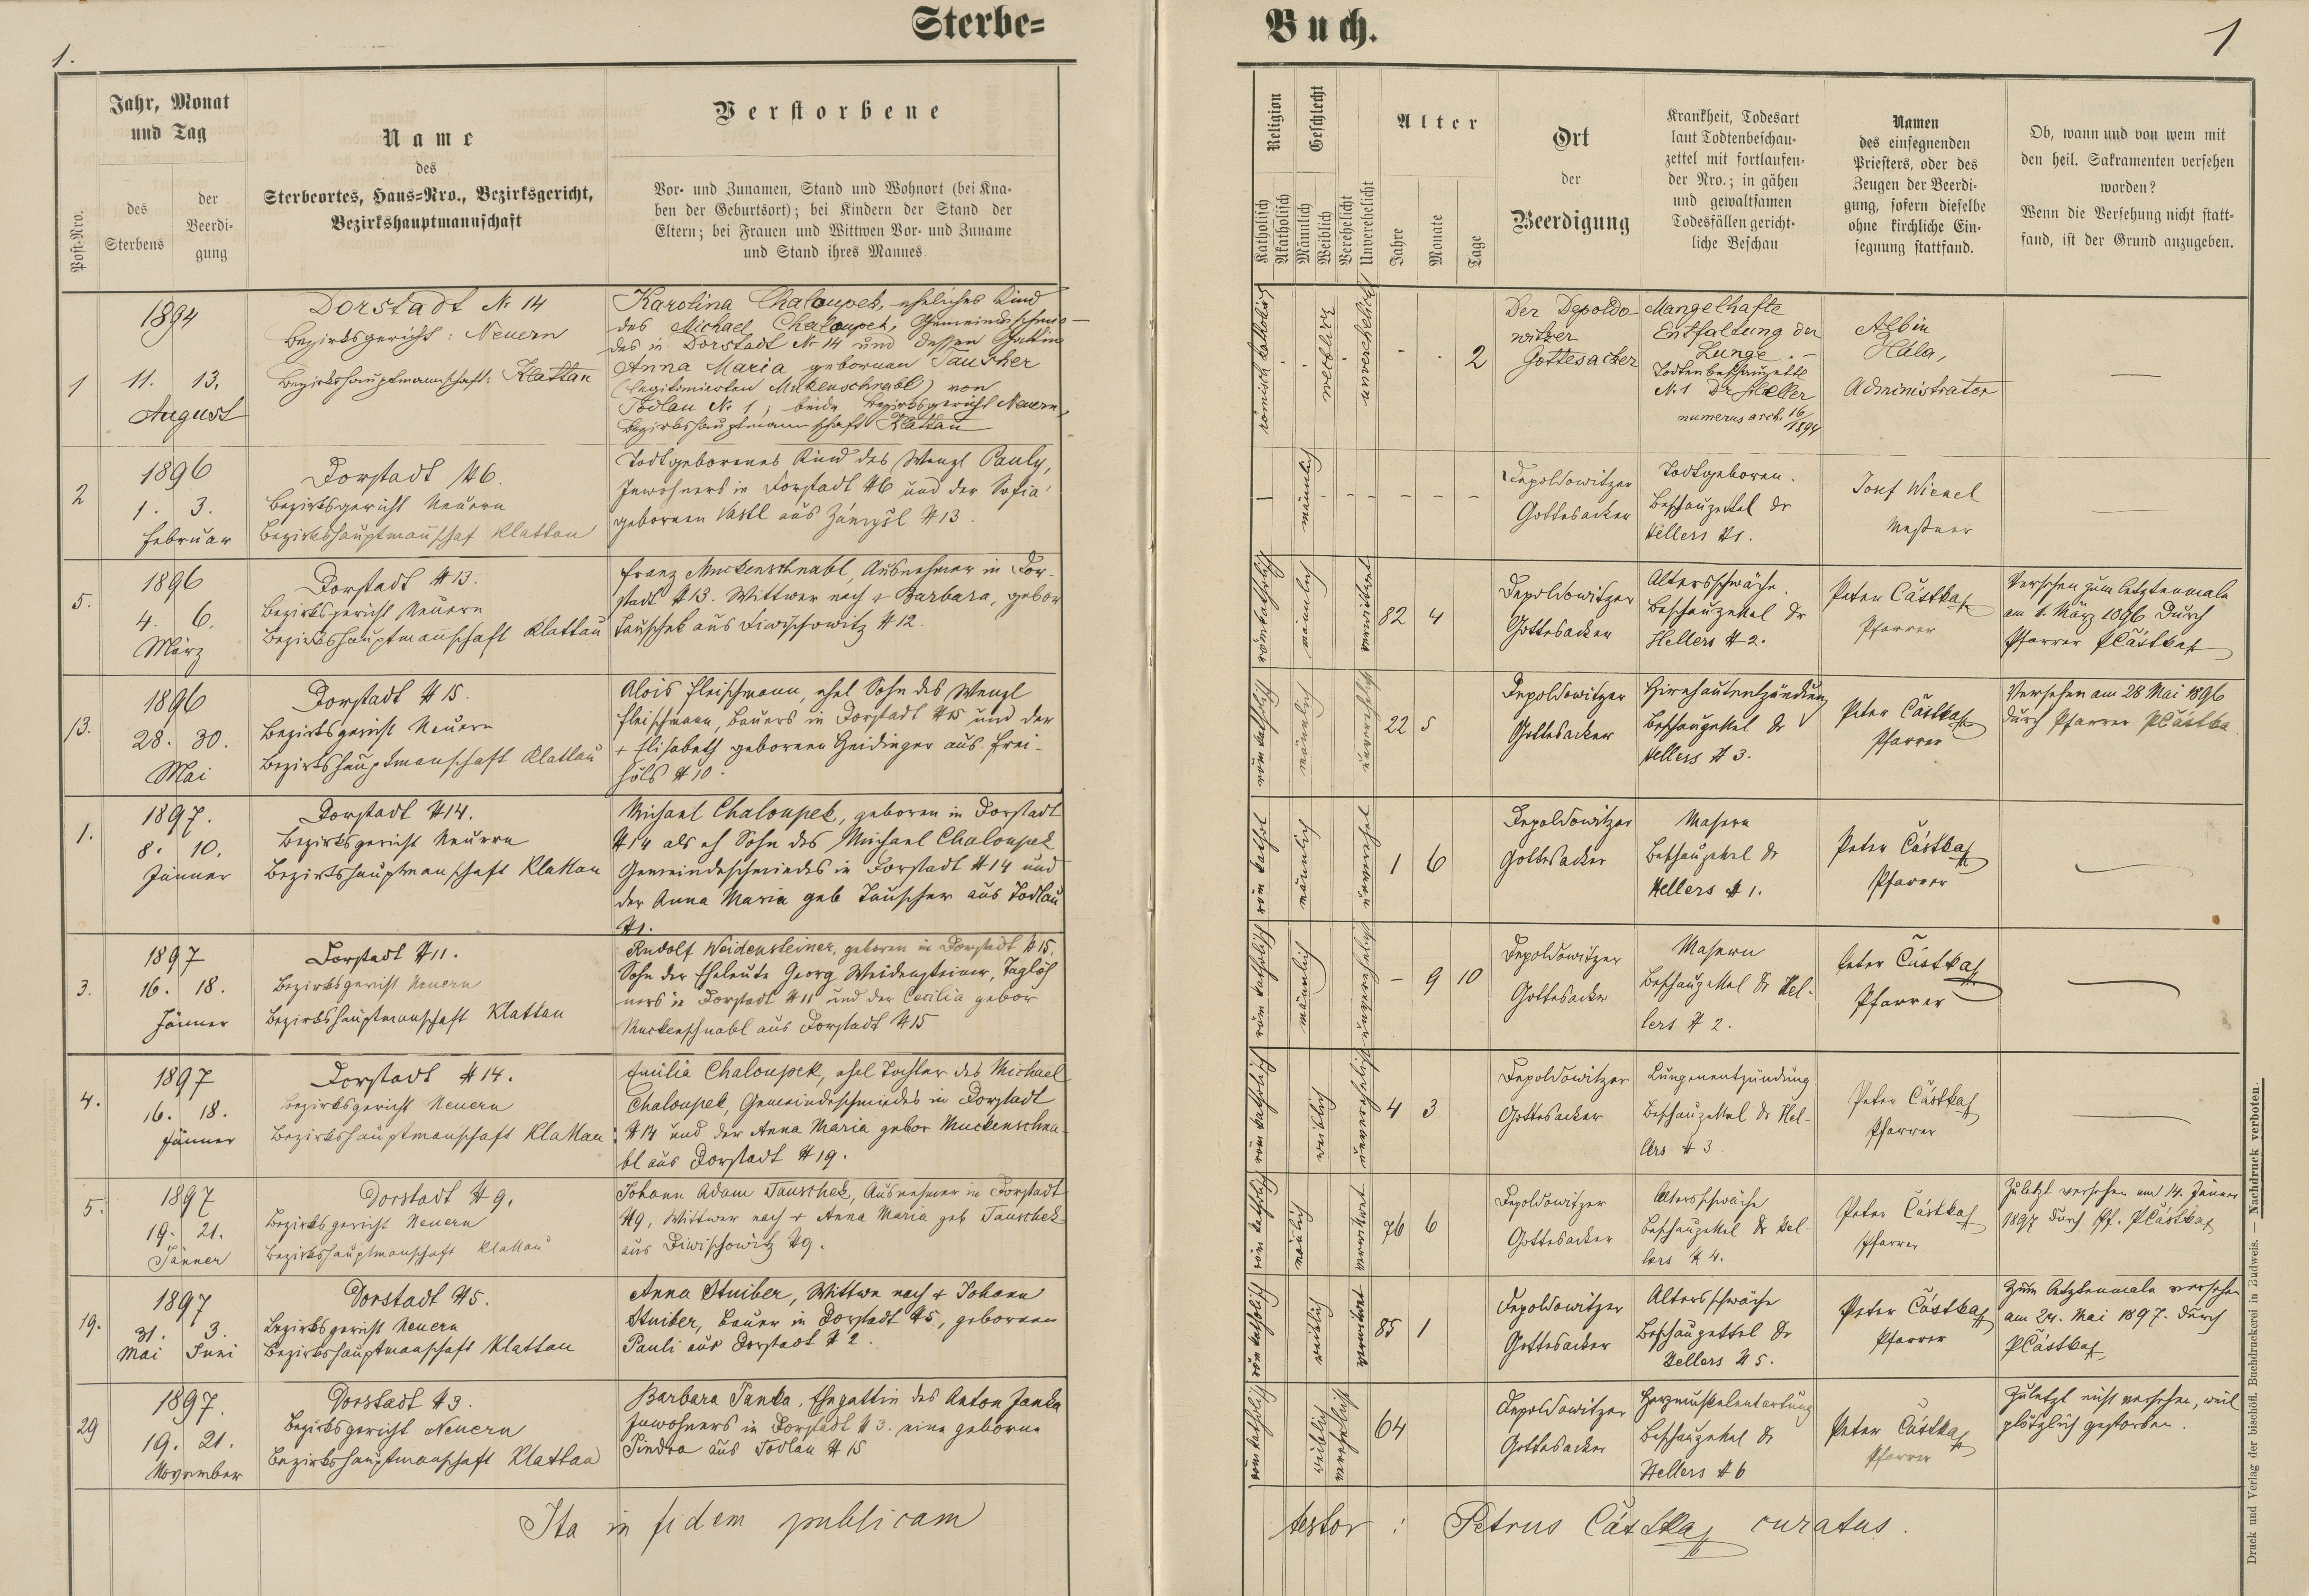 Sterbe=
Buch.
1.
1
Jahr, Monat
und Tag
des
Sterbens
der
Beerdi-
gung
Post-Nro.
Name
des
Sterbeortes, Haus=Nro., Bezirksgericht,
Bezirkshauptmannschaft
Verstorbene
Vor- und Zunamen, Stand und Wohnort (bei Kna-
ben der Geburtsort); bei Kindern der Stand der
Eltern; bei Frauen und Wittwen Vor- und Zuname
und Stand ihres Mannes.
Religion
Katholisch
Akatholisch
Geschlecht
Männlich
Weiblich
Verehelicht
Unverehelicht
Alter
Jahre
Monate
Tage
Ort
der
Beerdigung
Krankheit, Todesart
laut Todtenbeschau-
zettel mit fortlaufen-
der Nro.; in gähen
und gewaltsamen
Todesfällen gericht-
liche Beschau
Namen
des einsegnenden
Priesters, oder des
Zeugen der Beerdi-
gung, sofern dieselbe
ohne kirchliche Ein-
segnung stattfand.
Ob, wann und von wem mit
den heil. Sakramenten versehen
worden?
Wenn die Versehung nicht statt-
fand, ist der Grund anzugeben.
1
1894
11. 13.
August
Dorstadt № 14
Bezirksgericht: Neuern
Bezirkshauptmannschaft: Klattau
Karolina Chaloupek, eheliches Kind
des Michael Chaloupek, Gemeindeschmie-
des in Dorstadt № 14 und dessen Gattin
Anna Maria gebornen Tauscher
(legitimierten Muckenschnabl) von
Todlau № 1; beide Bezirksgericht Neuern,
Bezirkshauptmannschaft Klattau
römisch katholisch
weiblich
unverehelicht
- . 2
Der Depoldo
witzer
Gottesacker
Mangelhafte
Entfaltung der
Lunge. -
Todtenbeschauzettel
№ 1 Dr Heller
numerus arch. 16/1894
Albin
Hála,
Administrator
2
1896
1. 3.
Februar
Dorstadt N6.
Bezirksgericht Neuern
Bezirkshauptmanschaf Klattau
Todtgeborenes Kind des Wenzl Pauly,
Inwohners in Dorstadt N6 und der Sofia
gebornen Vastl aus N 13.
männlich
Depoldowitzer
Gottesacker
Todtgeboren.
Beschauzettel Dr
Hellers N1.
Josef Wienel
Meßner
5.
1896
4. 6.
März
Dorstadt N13.
Bezirksgericht Neuern
Bezirkshauptmanschaft Klattau
Franz Muckenschnabl, Ausnehmer in Dor-
stadt N13. Wittwer nach + Barbara, gebor
Tauschek aus Diwischowitz N12.
röm katholisch
männlich
verwitwet
82 4
Depoldowitzer
Gottesacker
Altersschwäche.
Beschauzettel Dr
Hellers N 2.
Peter Částka
Pfarrer
Versehen zum letztenmale
am 1. März 1896 durch
Pfarrer PČástka
13.
1896
28. 30.
Mai
Dorstadt N 15.
Bezirksgericht Neuern
Bezirkshauptmanschaft Klattau
Alois Fleischmann, ehel Sohn des Wenzl
Fleischmann, Bauers in Dorstadt N15 und der
+ Elisabeth gebornen Heidinger aus Frei-
höls N 10.
röm katholisch
männlich
unverehelicht
22 5
Depoldowitzer
Gottesacker
Hirnhautentzündung
Beschauzettel Dr
Hellers N 3.
Peter Částka
Pfarrer
Versehen am 28 Mai 1896
durch Pfarrer PČástka.
1.
1897.
8. 10.
Jänner
Dorstadt N14.
Bezirksgericht Neuern
Bezirkshauptmanschaft Klattau
Michael Chaloupek, geboren in Dorstadt
N14 als eh Sohn des Michael Chaloupek
Gemeindeschmiedes in Dorstadt N14 und
der Anna Maria geb Tauscher aus Todlau
N1.
männlich
1 6
Depoldowitzer
Gottesacker
Masern
Beschauzettel Dr
Hellers N 1.
Peter Částka
Pfarrer
3.
1897
16. 18.
Jänner
Dorstadt N11.
Bezirksgericht Neuern
Bezirkshauptmanschaft Klattau
Rudolf Weidensteiner, geboren in Dorstadt N15.
Sohn der Eheleute Georg Weidensteiner, Taglöh
ners in Dorstadt N11 und der Cecilia gebor
Muckenschnabl aus Dorstadt N15
röm katholisch
männlich
unverehelicht
- 9 10
Depoldowitzer
Gottesacker
Masern
Beschauzettel Dr Hel-
lers N 2.
Peter Částka
Pfarrer
4.
1897
16. 18.
Jänner
Dorstadt N14.
Bezirksgericht Neuern
Bezirkshauptmanschaft Klattau
Emilia Chaloupek, ehel Tochter des Michael
Chaloupek, Gemeindeschmiedes in Dorstadt
N14 und der Anna Maria gebor Muckenschna-
bl aus Dorstadt N19.
röm katholisch
weiblich
unverehelicht
4 3
Depoldowitzer
Gottesacker
Lungenentzündung
Beschauzettel Dr Hel-
lers N 3
Peter Částka
Pfarrer
5.
1897
19. 21.
Jänner
Dorstadt N9.
Bezirksgericht Neuern
Bezirkshauptmanschaft Klattau
Johann Adam Tauschek, Ausnehmer in Dorstadt
N9, Wittwer nach + Anna Maria geb Tauschek
aus Diwischowitz N9.
röm katholisch
männlich
verwitwet
76 6
Depoldowitzer
Gottesacker
Altersschwäche
Beschauzettel Dr Hel-
lers N 4.
Peter Částka
Pfarrer
Zuletzt versehen am 14. Jänner
1897 durch Pf. PČástka
19.
1897
31. 3.
Mai Juni
Dorstadt N5.
Bezirksgericht Neuern
Bezirkshauptmanschaft Klattau
Anna Stuiber, Wittwe nach + Johann
Stuiber, Bauer in Dorstadt N5, gebornen
Pauli aus Dorstadt N 2.
röm katholisch
weiblich
verwitwet
85 1
Depoldowitzer
Gottesacker
Altersschwäche
Beschauzettel Dr
Hellers N 5.
Peter Částka
Pfarrer
Zum letztenmale versehen
am 24. Mai 1897. durch
PČástka
29
1897.
19. 21.
November
Dorstadt N3.
Bezirksgericht Neuern
Bezirkshauptmanschaft Klattau
Barbara Janka, Ehegattin des Anton Janka
Inwohners in Dorstadt N3. eine geborne
Pindra aus Todlau N 15
röm katholisch
weiblich
verehelicht
64
Depoldowitzer
Gottesacker
Herzmuskelentartung
Beschauzettel Dr
Hellers N 6
Peter Částka
Pfarrer
Zuletzt nicht versehen, weil
plötzlich gestorben.
Ita in fidem publicam
testor: Petrus Částka curatus.
Druck und Verlag der bischöfl. Buchdruckerei in Budweis. — Nachdruck verboten.